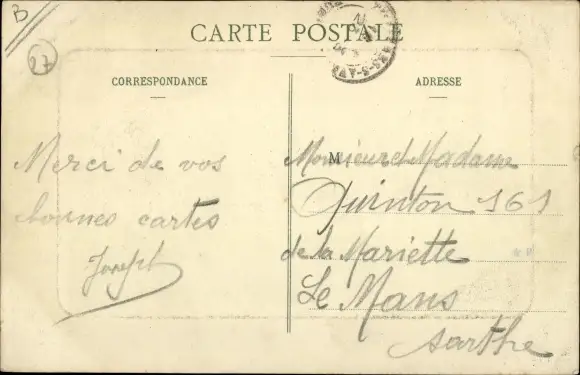 B
27
CARTE POSTALE
CORRESPONDANCE
ADRESSE
Merci de vos
bonnes cartes
Joseph
M
Monsieur et Madame
Quinton 161
de la Mariette
Le Mans
Sarthe